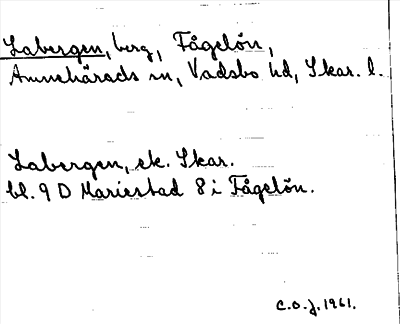 Labergen, berg, Fågelön,
Amnehärads sn, Vadsbo hd, Skar. l.
Labergen, ek. Skar.
bl. 9 D Mariestad 8 i Fågelön.
C.O.J. 1961.